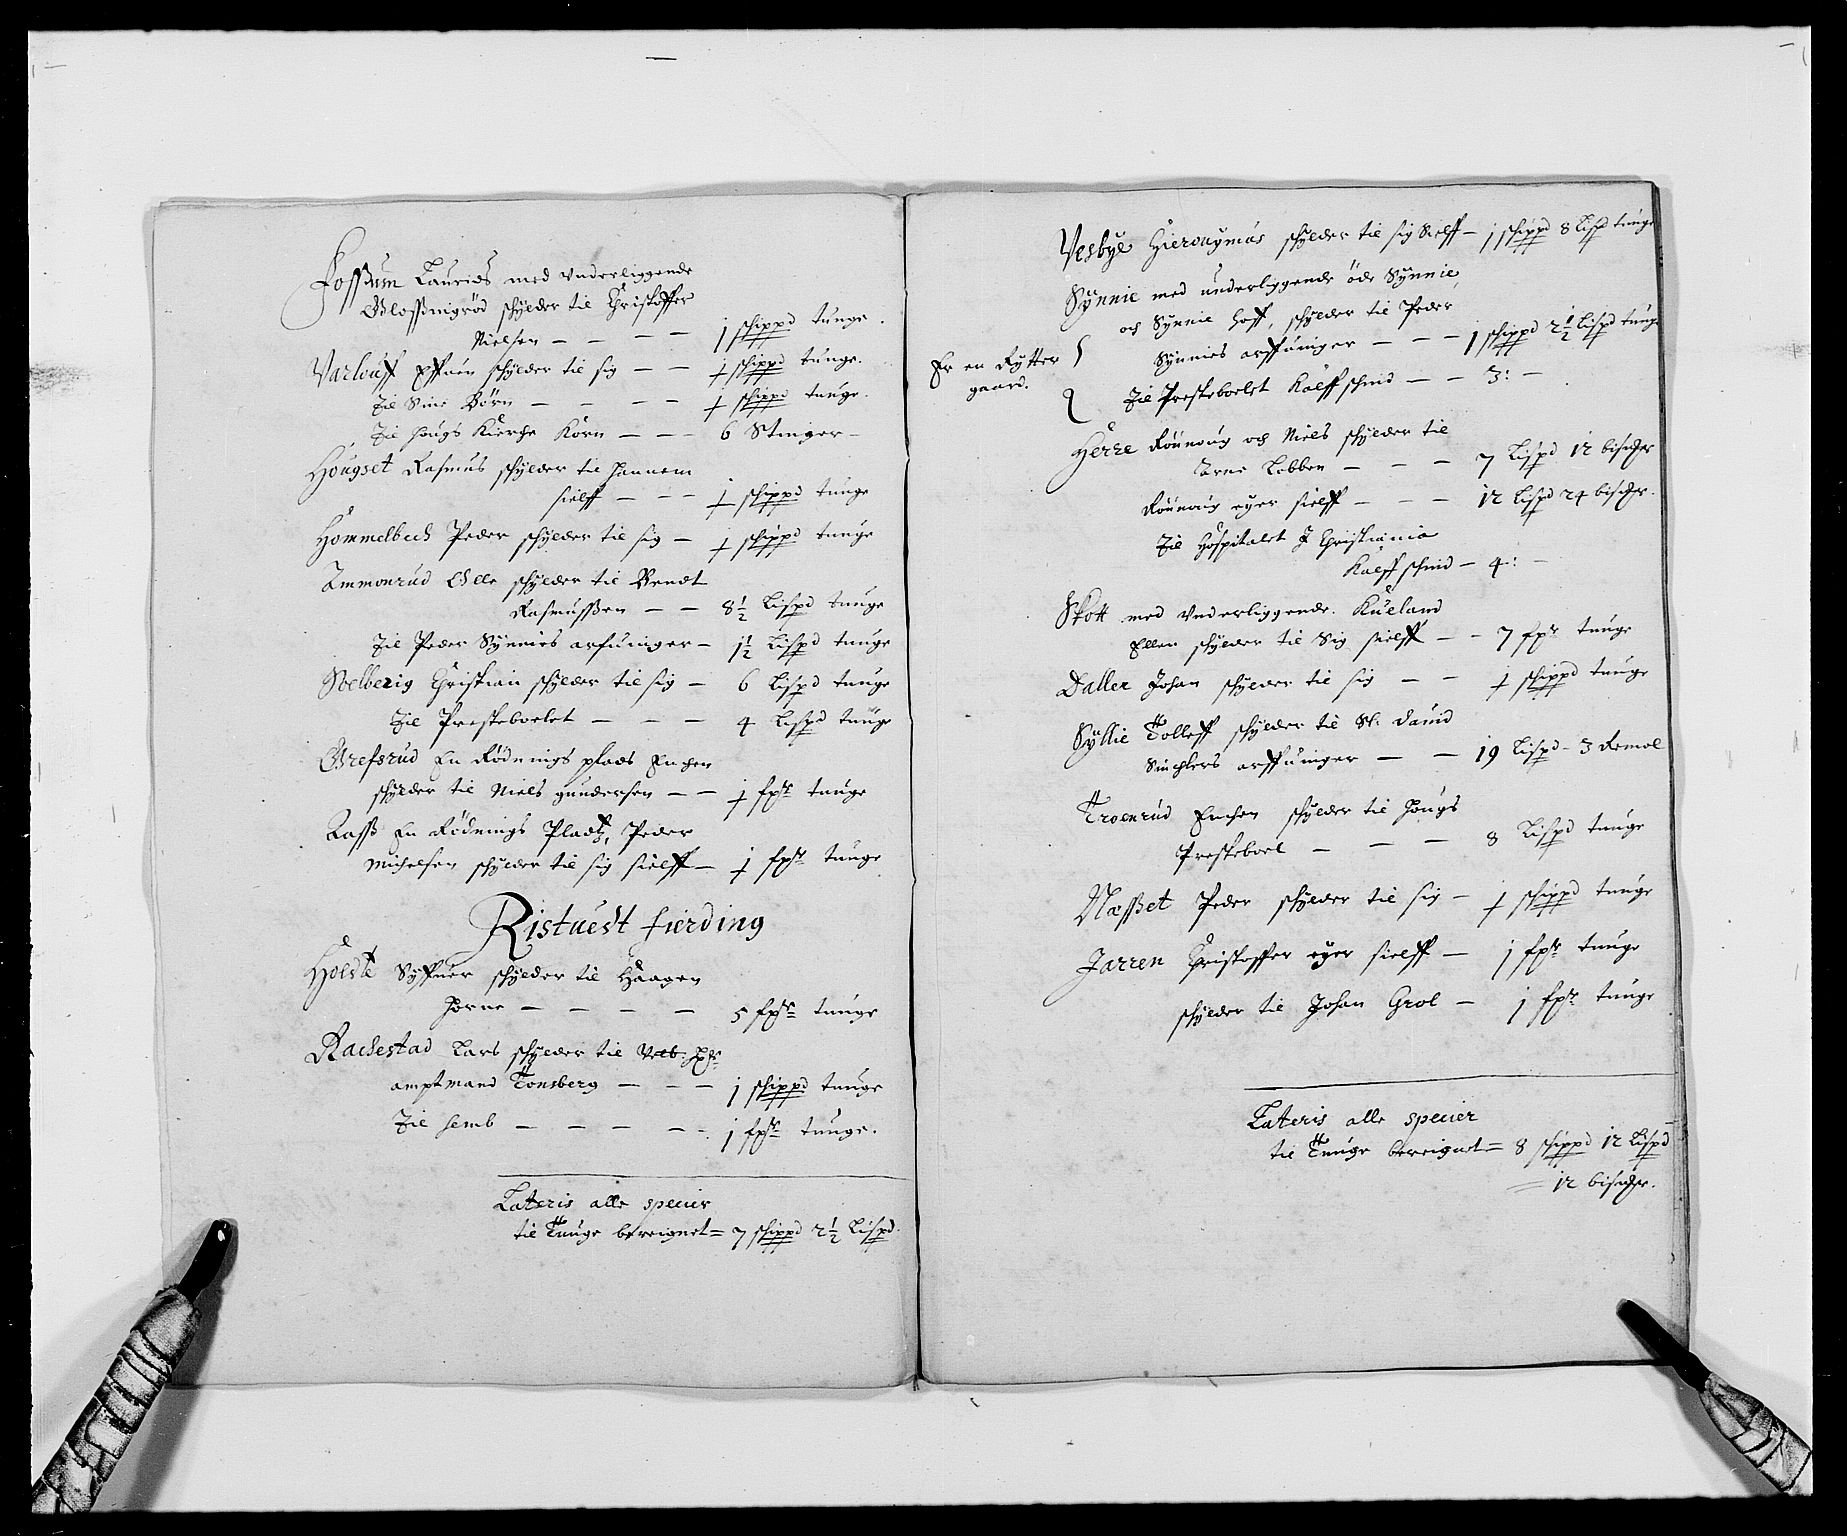 Fossum Laurids med Vnderliggende
Glossmigrød schylder til Christoffer
Nielsen — — — — 1 schippd tunge.
Varlouff Effuen schylder til sig — — 1 schippd tunge.
Til Sine Børn — — — — 1 schippd tunge.
Til Hougs Kierche Korn — — — 6 Stinger —
Hougset Rasmus schylder til Hannem
sielff — — — 1 schippd tunge
Hommelbech Peder schylder til sig — 1 schippd tunge
Immonrud Olle schylder til Bendt
Rasmussen — — 8½ Lispd tunge
Til Peder Synnies arfuinger — 1½ Lispd tunge
Solberig Christian schylder til sig — 6 Lispd tunge
Til Presteboelet — — — 4 Lispd tunge
Grefsrud En Rødnings plads Enchen
schylder til Niels gundersen — — 1 fpr tunge
Kass En Rødnings Pladtz, Peder
Michelsen schylder til sig sielff — 1 fpr tunge
Ristuedt fierding
Holste Syffuer schylder til Haagen
Horne — — — — 5 fpr tunge
Rachestad Lars schylder til Velb: Hr
amptmand Tonsberg — — — 1 schippd tunge
Til Semb — — — — 1 fpr tunge.
Lateris alle specier
til Tunge bereignet = 7 schippd 2½ Lispd.
Vesbye Hieronymus schylder til sig Sielff — 1 schippd 8 Lispd tunge
Synnie med underliggende øde Synnie,
och Synnie Hoff, schylder til Peder
Er en Rytter gaard.
Synnies arffuinger — — — 1 schippd 2½ Lispd tunge
Til Presteboelet Kalffschind — — 3: —
Herre Rønnoug och Niels schylder til
Arne Lobben — — — 7 Lispd 12 bischr
Rønnoug eyer sielff — — — 12 Lispd 24 bischr.
Til Hospitalet J Christiania
Kalffschind — 4: —
Skott med Vnderliggende Kueland
Ellen schylder til Sig sielff — — 7 fpr tunge
Daller Johan schylder til sig — — 1 schippd tunge
Syllie Tolleff schylder til Sl. Dauid
Sinchlers arffuinger — — 19 Lispd – 3 Remol
Troenrud Enchen schylder til Hougs
Presteboel — — — 8 Lispd tunge
Næsset Peder schylder til sig — 1 schippd tunge
Jarren Christoffer eyer sielff — 1 fpr tunge
schylder til Johan Grol — 1 fpr tunge
Lateris alle specier
til Tunge bereignet = 8 schippd 12 Lispd
= 12 bischr.